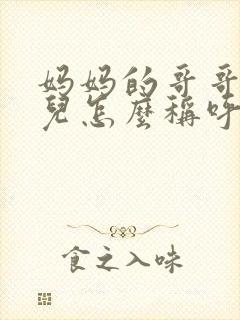 妈妈的哥哥
兒怎麼稱呼
食之入味